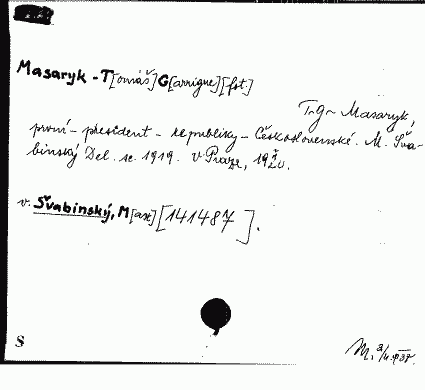 Masaryk - T[omáš] G[arrigue] [fst.]
T. G. Masaryk,
první president republiky Československé. M. Šva-
binský Del. sc. 1919. V Praze, 19
v. Švabinský, M[ax] [141487].
S